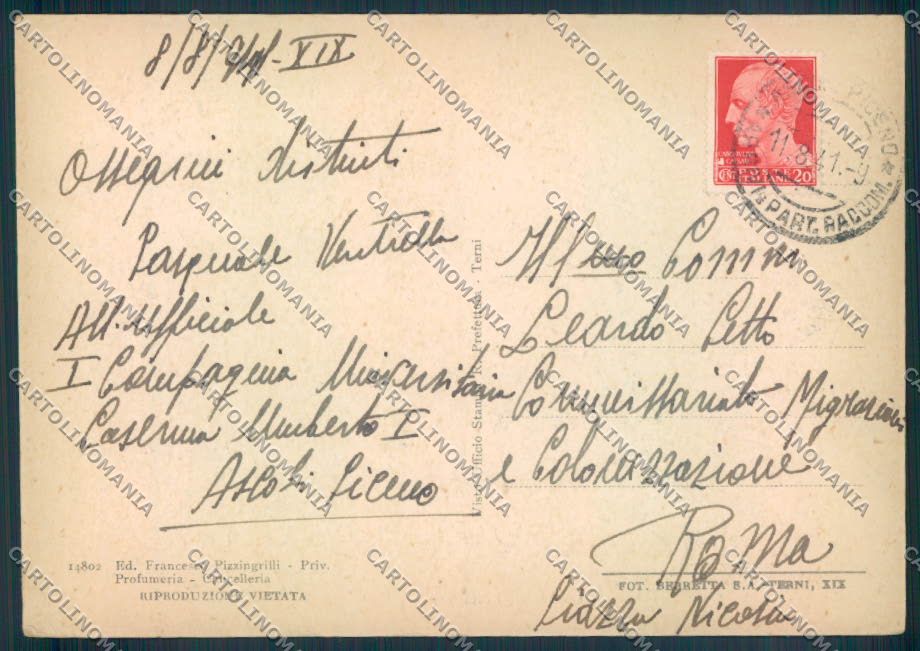 8/8/941-XIX
Ossequi distinti
Pasquale Ventrella
All. Ufficiale
I Compagnia Universitaria
Caserma Umberto I
Ascoli Piceno
14802 Ed. Francesco Pizzingrilli - Priv.
Profumeria - Cancelleria
RIPRODUZIONE VIETATA
Visto Ufficio Stampa R. Prefettura - Terni
POSTE
ITALIANE
CENT 20
PICENO
11.8.41.-9
PART. RACCOM.
Ill/mo Comm
Leardo Cetto
Commissariato Migrazioni
e Colonizzazione
Roma
FOT. BERRETTA S.A. TERNI, XIX
Piazza Nicosia
CARTOLINOMANIA